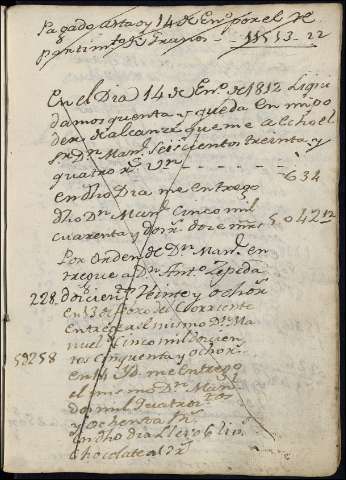 Pagado asta oy 14 de En.º por el Re
partimto de Granos - 11513.. 22
En el Dia 14 de En.º de 1812 Liqui
damos quenta y queda en mi po
der de alcanze que me a echo el
Sr. Dn. Man.l Seiscientos treinta y
quatro r.s Vn - - - - - 634
en dho Dia me entrego
dho Dn. Man.l Cinco mil
cuarenta y dos r.s doze mrs 5042 12
Por Orden de Dn. Man.l en
tregue a Dn. Ant.º Zepeda
228. doscien.s Veinte y ocho r
en 13 de Corriente
Entregue al mismo Dn. Ma
nuel Cinco mil doscien
5258 tos cinquenta y ocho r.
en 14 Yd. me entrego
el mismo Dn. Man.l
dos mil quatroz.tos
y ochenta r.s
en dho dia Llevo 6 li.s
chocolate al Sr.